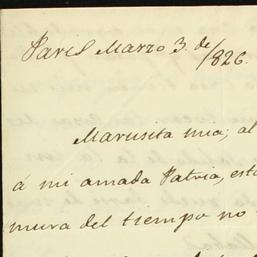 Paris Marzo 3 de 1826.
Maruxita mia; al
á mi amada Patria, est
mura del tiempo no